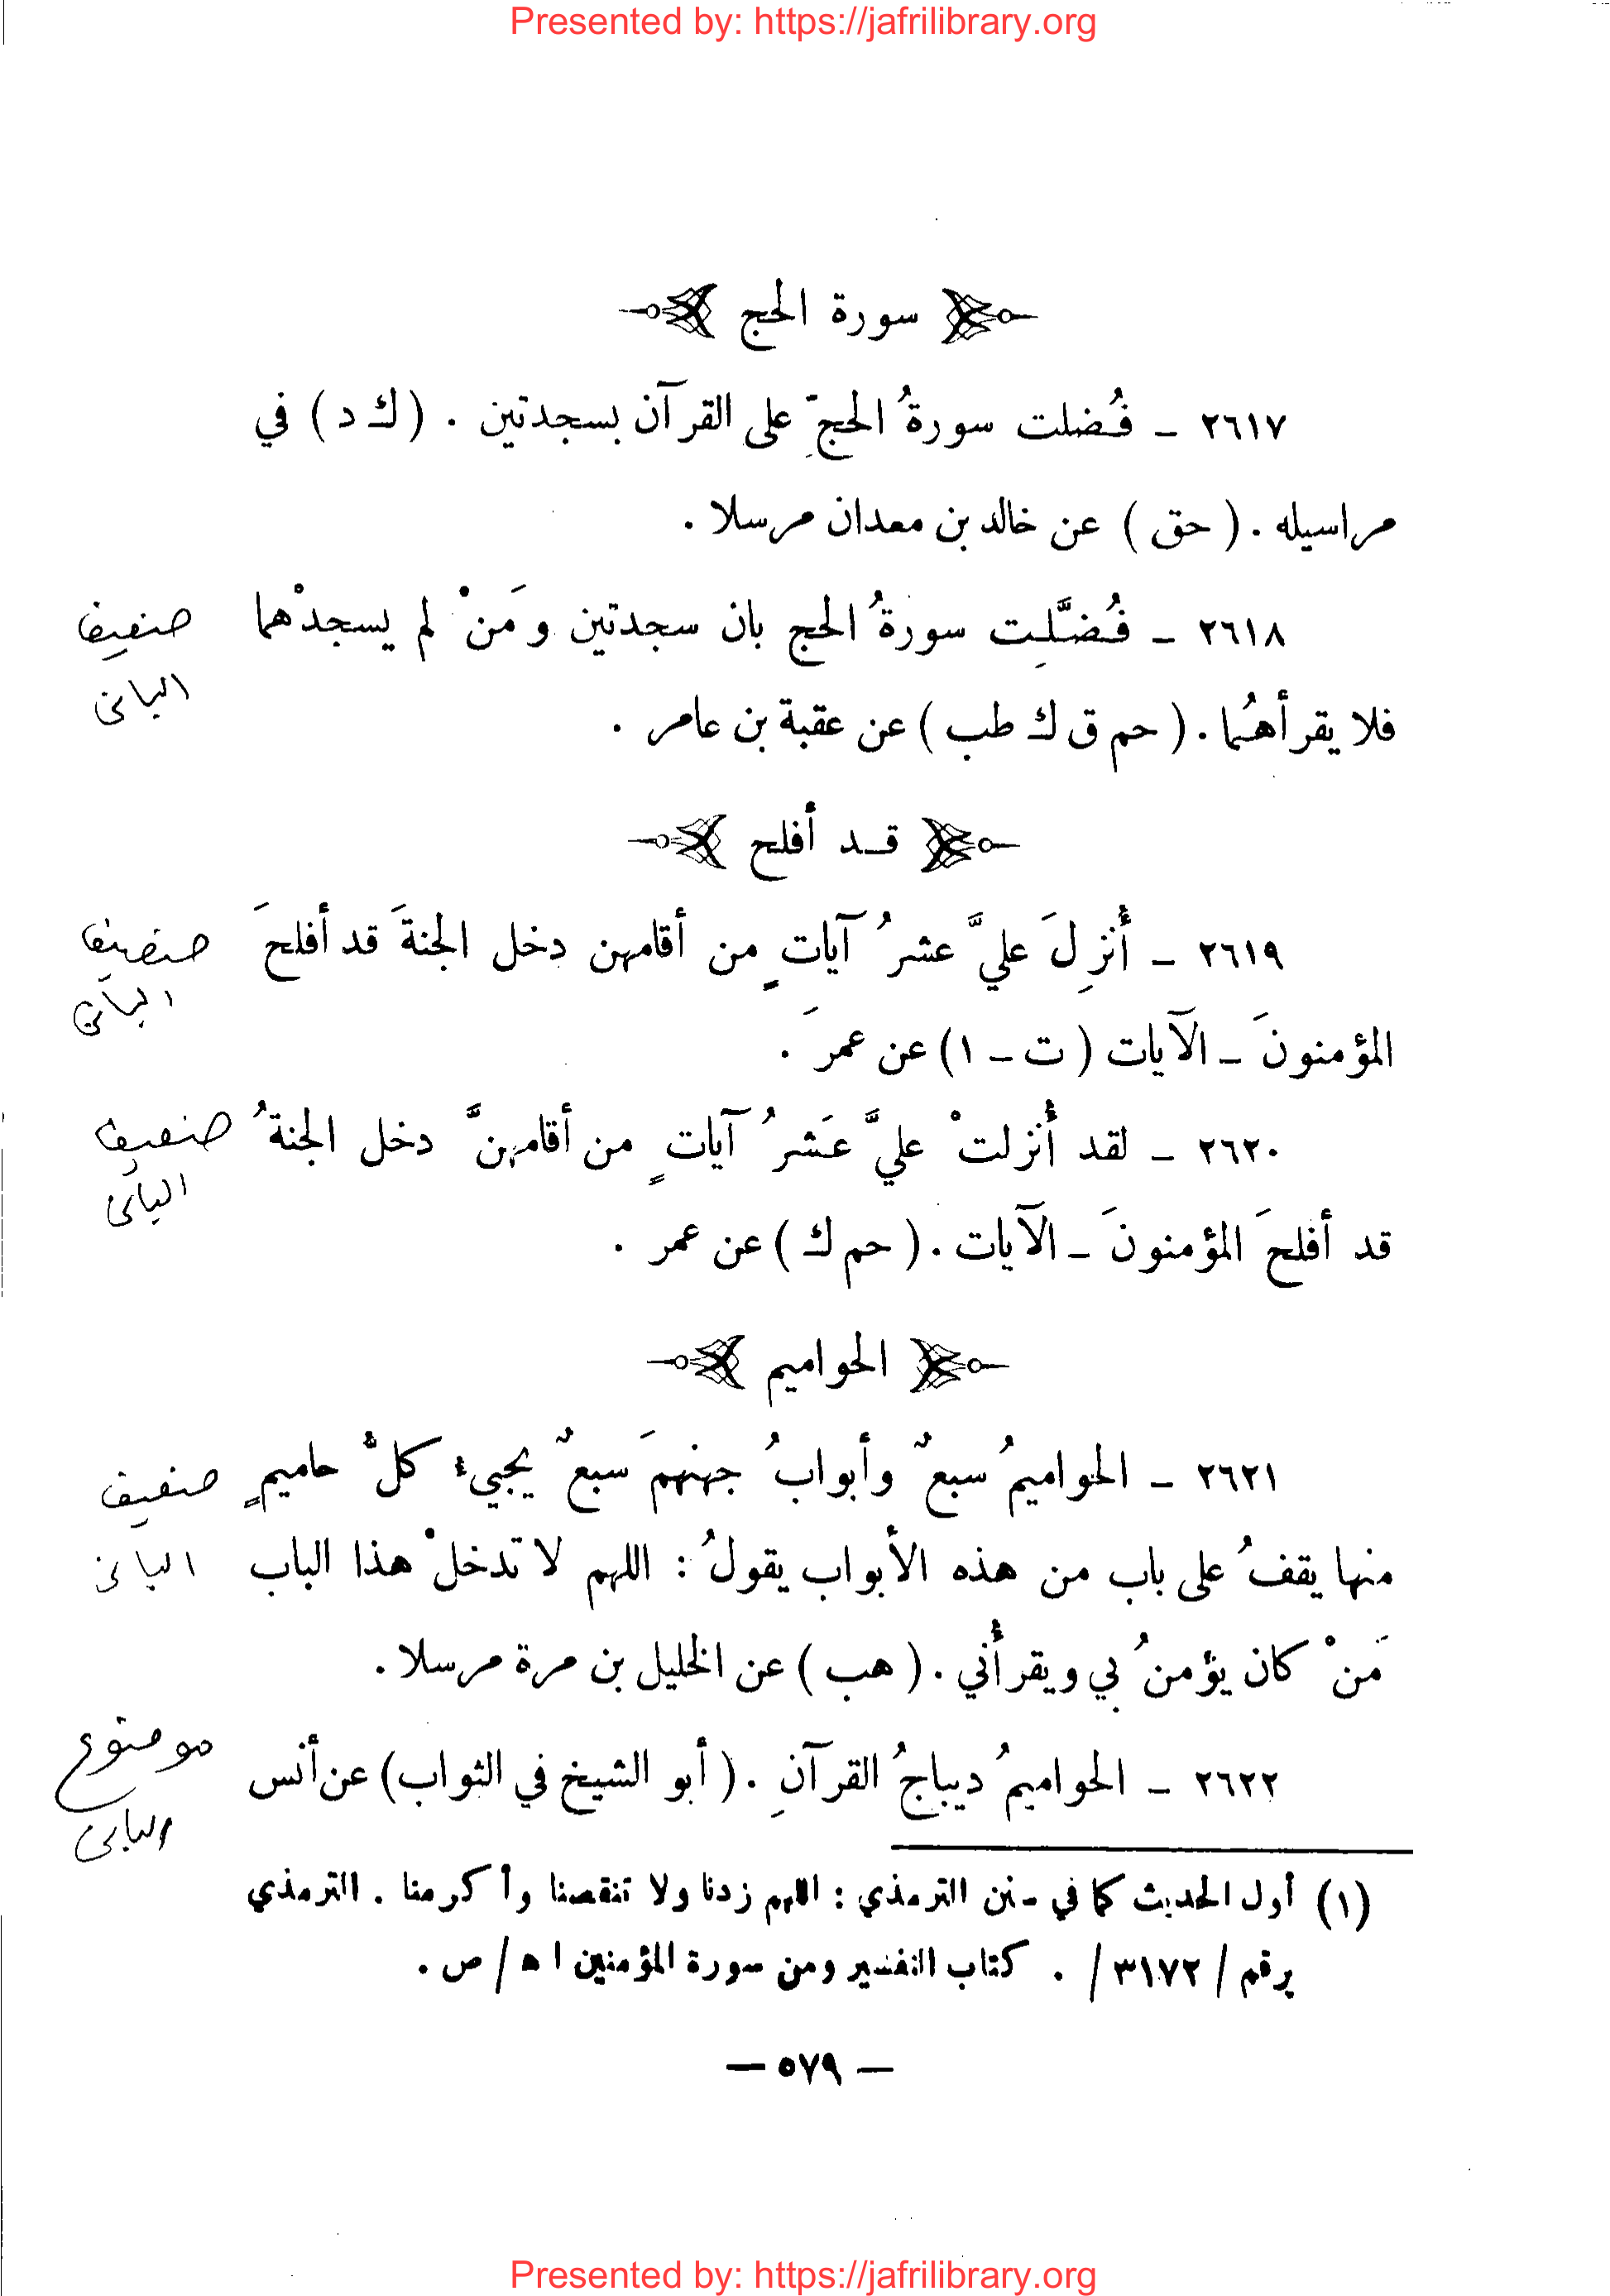 Presented by: https://jafrilibrary.org
سورة الحج
٢٦١٧ ـ فُضلت سورةُ الحجِّ على القرآن بسجدتين . ( ك د ) في
مراسيله . ( حق ) عن خالد بن معدان مرسلا .
٢٦١٨ ـ فُضِّلت سورةُ الحج بان سجدتين ومَنْ لم يسجدْهما
ضعيف
البانى
فلا يقرأهُما . ( حم ق ك طب ) عن عقبة بن عامر .
قد أفلح
٢٦١٩ ـ أُنزِلَ عليَّ عشرُ آياتٍ من أقامهن دخل الجنةَ قد أفلحَ
ضعيف
البانى
المؤمنونَ ـ الآيات ( ت ـ ١ ) عن عمرَ .
٢٦٢٠ ـ لقد أُنزلتْ عليَّ عَشرُ آياتٍ من أقامهنَّ دخل الجنةُ
ضعيف
البانى
قد أفلحَ المؤمنونَ ـ الآيات . ( حم ك ) عن عمر .
الحواميم
٢٦٢١ ـ الحواميمُ سبعٌ وأبوابُ جهنمَ سبعٌ يجيء كلُّ حاميمٍ
ضعيف
منها يقفُ على باب من هذه الأبواب يقولُ : اللهم لا تدخلْ هذا الباب
البانى
مَنْ كان يؤمنُ بي ويقرأُني . ( هب ) عن الخليل بن مرة مرسلا .
٢٦٢٢ ـ الحواميمُ ديباجُ القرآنِ . ( أبو الشيخ في الثواب ) عن أنس
موضوع
البانى
(١) أول الحديث كما في سنن الترمذي : اللهم زدنا ولا تنقصنا وأكرمنا . الترمذي
برقم / ٣١٧٢ / . كتاب التفسير ومن سورة المؤمنين ا ه / ص .
— ٥٧٩ —
Presented by: https://jafrilibrary.org